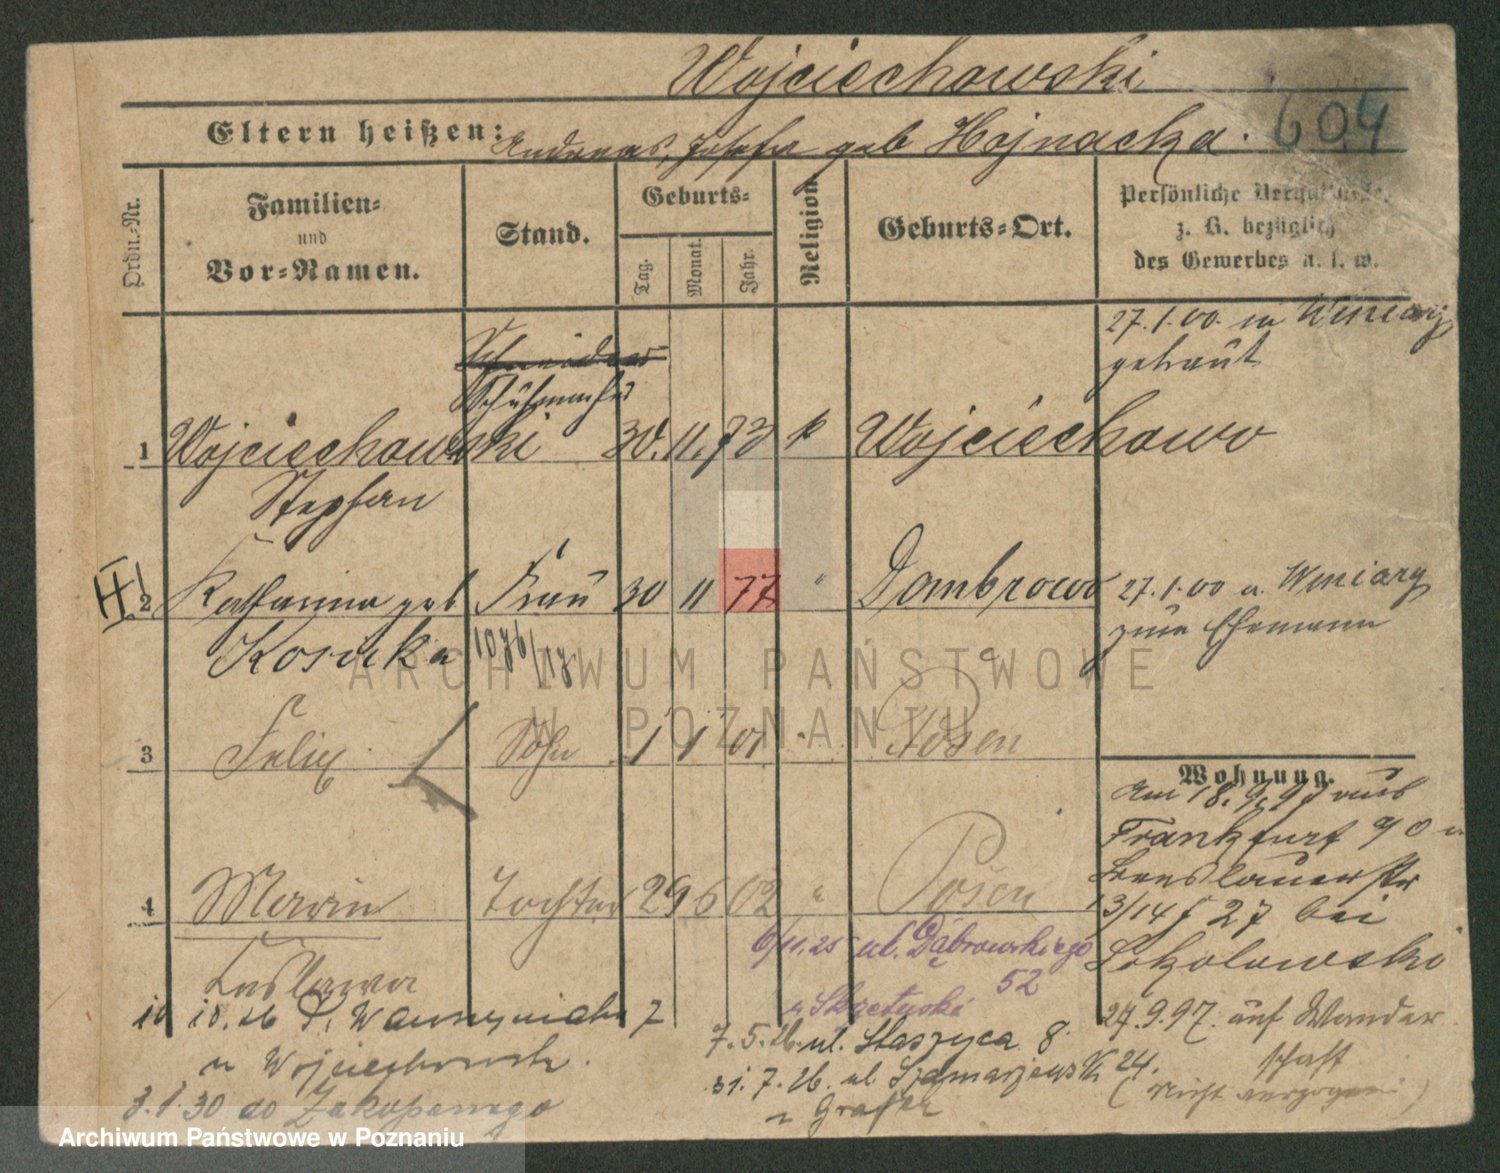 Wojciechowski
604
Eltern heißen: Andreas, Josefa geb Hojnacka.
Ordn.-Nr.
Familien-
und
Vor-Namen.
Stand.
Geburts-
Tag.
Monat.
Jahr.
Religion
Geburts-Ort.
Persönliche
z. B. bezüglich
des Gewerbes u. s. w.
27.1.00. in Winiary
getraut
Schneider
Schuhmacher
1 Wojciechowski 30. 11. 73 k Wojciechowo
Stephan
2 Katharina geb Frau 30 11 77 " Dombrowo
27.1.00 a. Winiary
zum Ehemann
3 Felix Sohn 1 1 01 " Posen
Wohnung.
Am 18.9.97 aus
Frankfurt
Breslauerstr
13/14 f 27 bei
Sokolowski
4 Tochter 29 6 02 " Posen
6/11.25 ul. Dąbrowskiego
52
u Skrzetuski
27.9.97. auf Wander
schaft
(Nicht verzogen)
7
u Wojciechowsk
7.5.26. ul. Staszyca 8.
31.7.26. ul Szamarzewsk 24.
3.1.30 do Zakopanego
ARCHIWUM PAŃSTWOWE
W POZNANIU
Archiwum Państwowe w Poznaniu